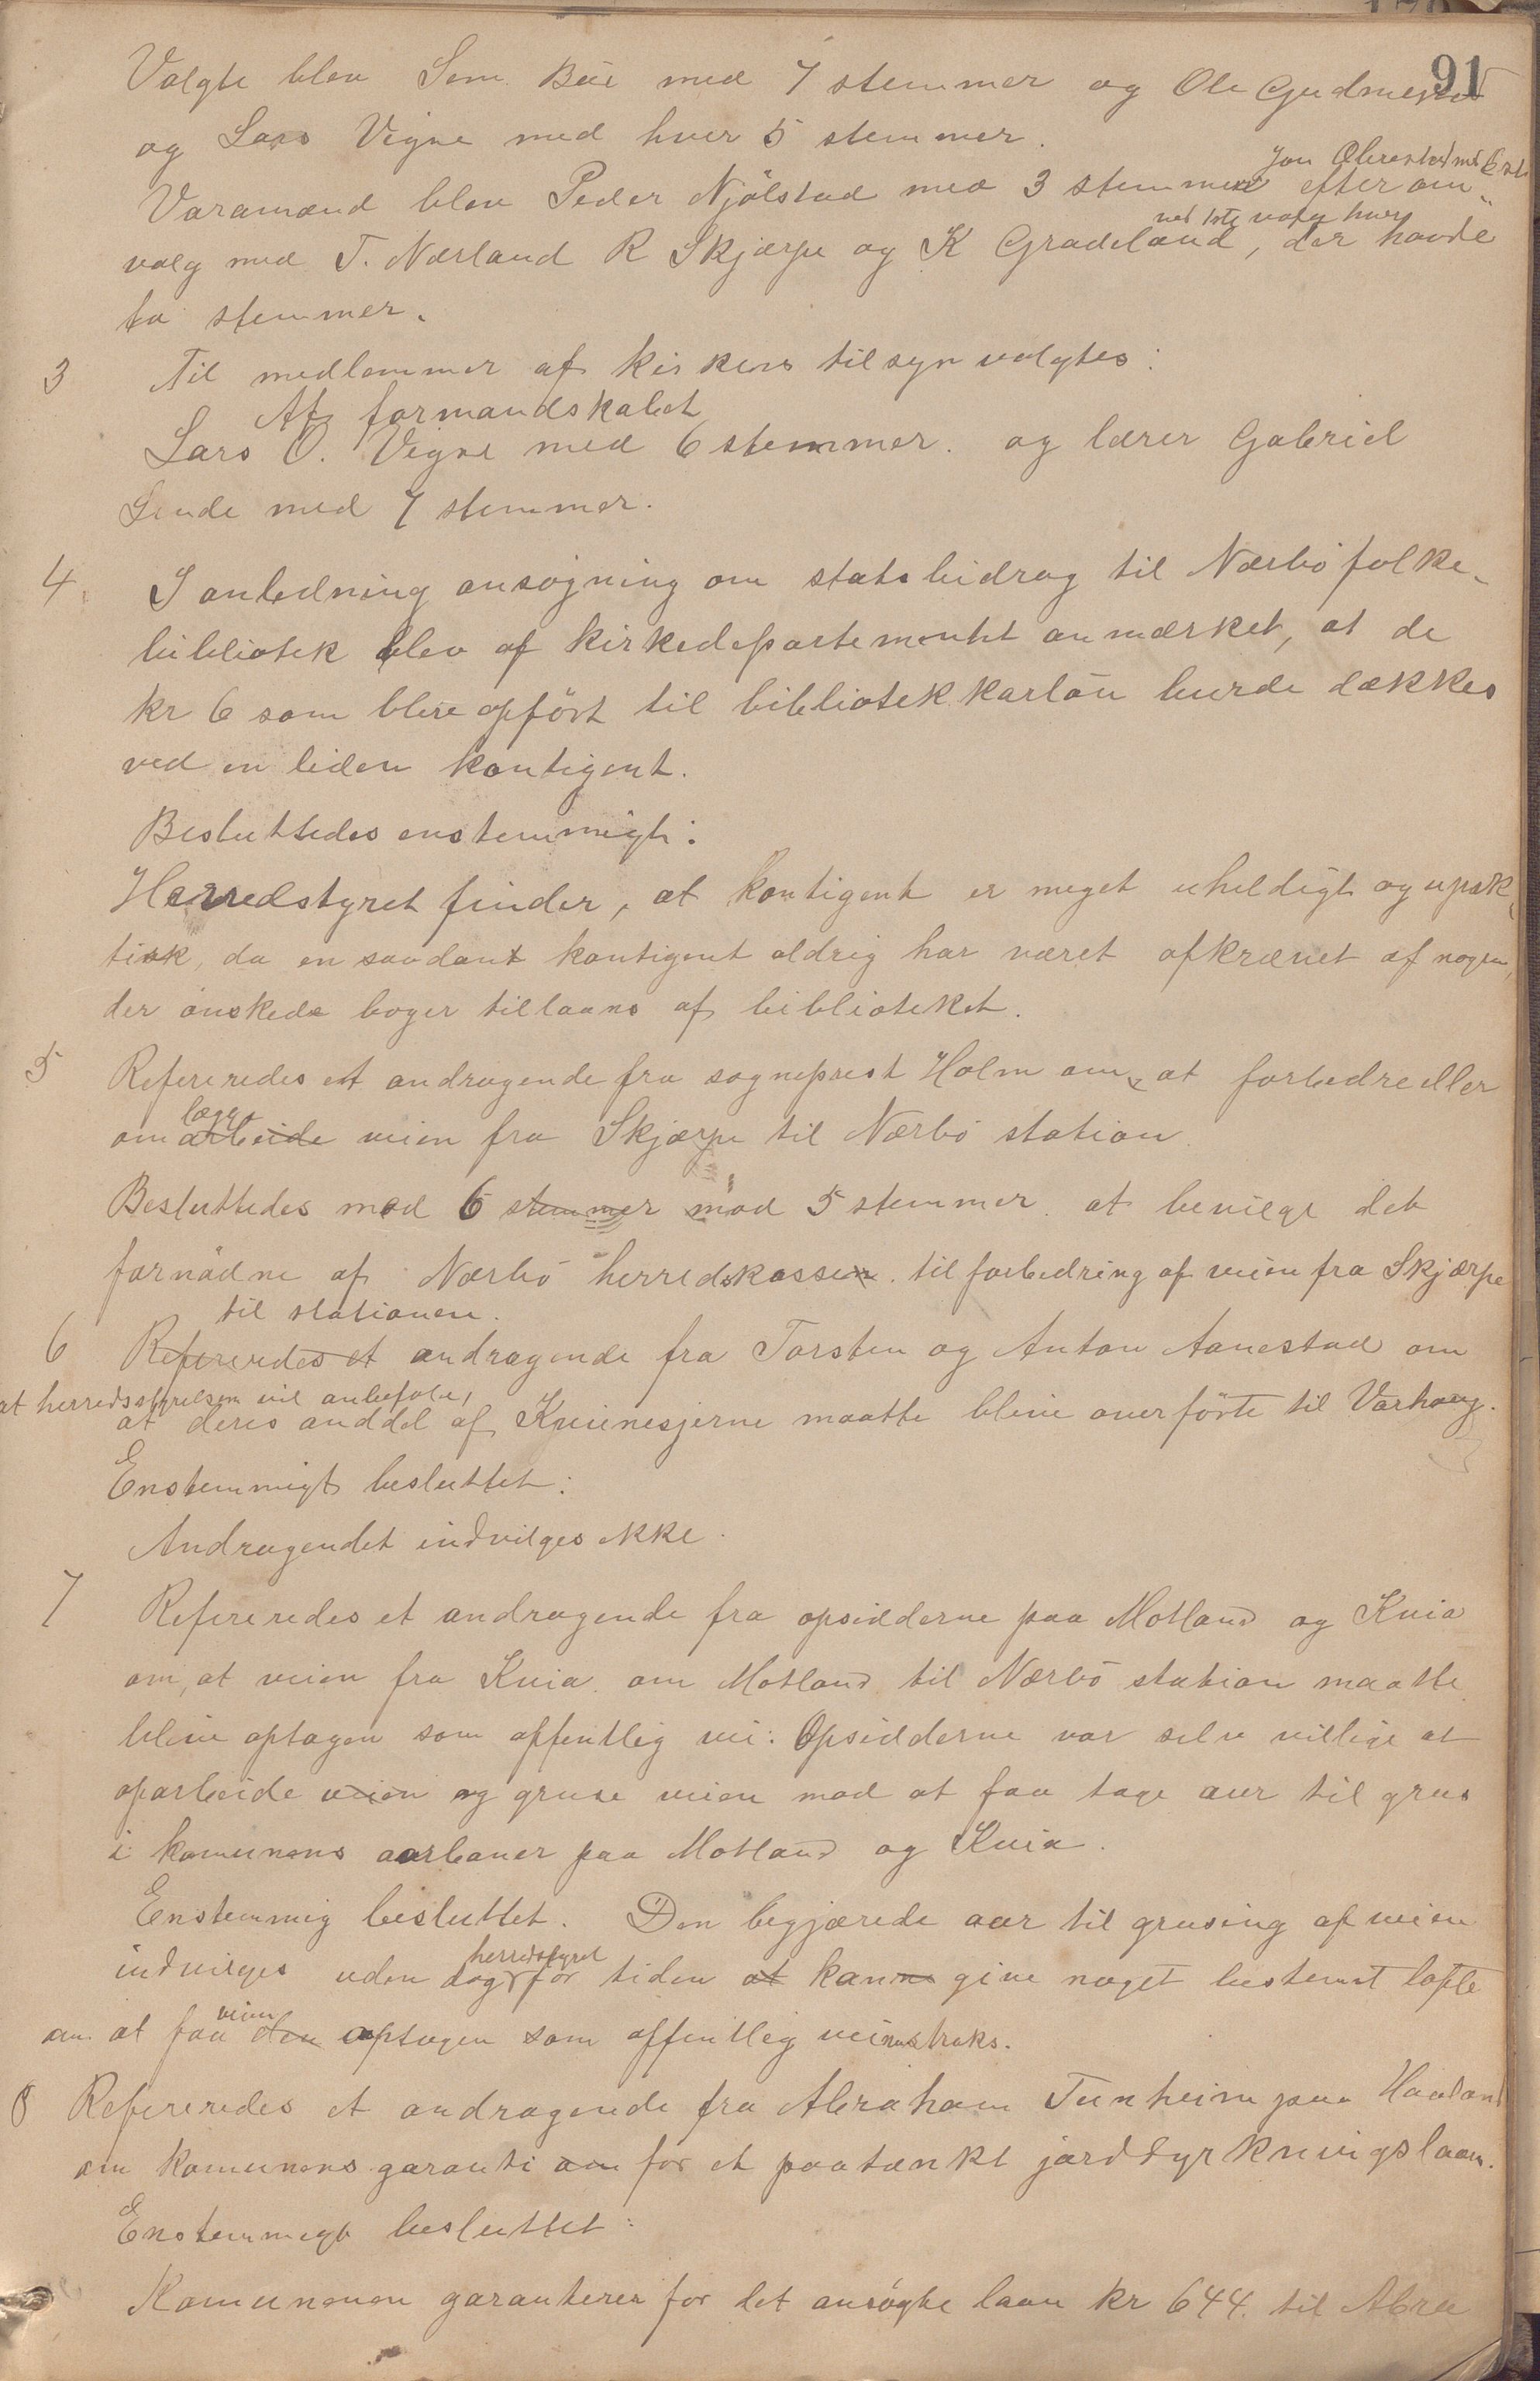 91
Valgte blev Sem Bøe med 7 stemmer og Ole Gudmestad
og Lars Vigre med hver 5 stemmer.
Jon Obrestad med 6 st.
Varamænd blev Peder Njølstad med 3 stemmer efter om-
ved 1ste valg hver
valg med T. Nærland R Skjærpe og K Gradeland, der havde
to stemmer.
3 Til medlemmer af kirkens tilsyn valgtes:
Af formandskabet
Lars O. Vigre med 6 stemmer. og lærer Gabriel
Line med 7 stemmer.
4. I anledning ansøgning om statsbidrag til Nærbø folke-
bibliotek blev af kirkedepartementet anmærket, at de
kr 6 som blive opført til bibliotekkarløn burde dækkes
ved en liden kontigent.
Besluttedes enstemmigt:
Herredstyret finder, at kontigent er meget uheldigt og uprak-
tisk, da en saadant kontigent aldrig har været afkrævet af nogen,
der ønskede bøger tillaans af biblioteket.
5 Refereredes et andragende fra sogneprest Holm om, at forbedre eller
lægge
omarbeide veien fra Skjærpe til Nærbø station
Besluttedes med 6 stemmer mod 5 stemmer. at bevilge det
fornødne af Nærbø herredskassen. til forbedring af veien fra Skjærpe
til stationen.
6 Refereredes et andragende fra Torsten og Anton Aanestad om
at herredsstyrelsen vil anbefale,
at deres anddel af Kvienesjerne maatte blive overførte til Varhaug.
Enstemmigt besluttet:
Andragendet indvilges ikke.
7 Refereredes et andragende fra opsidderne paa Motland og Kvia
om, at veien fra Kvia om Motland til Nærbø station maatte
blive optagen som offentlig vei. Opsidderne var selv villige at
oparbeide veien og gruse veien mod at faa tage aur til grus
i komunens aurbaner paa Motland og Kvia.
Enstemmig besluttet. Den begjærede aur til grusing af veien
herredstyret
indvilges uden dog for tiden at kanne give noget bestemt løfte
veien
om at faa den optagen som offentlig vei straks.
8 Refereredes et andragende fra Abraham Tunheim paa Haaland
om komunens garanti om for et paatænkt jorddyrkningslaan.
Enstemmigt besluttet:
Komunenen garanterer for det ansøgte laan kr 644. til Abra